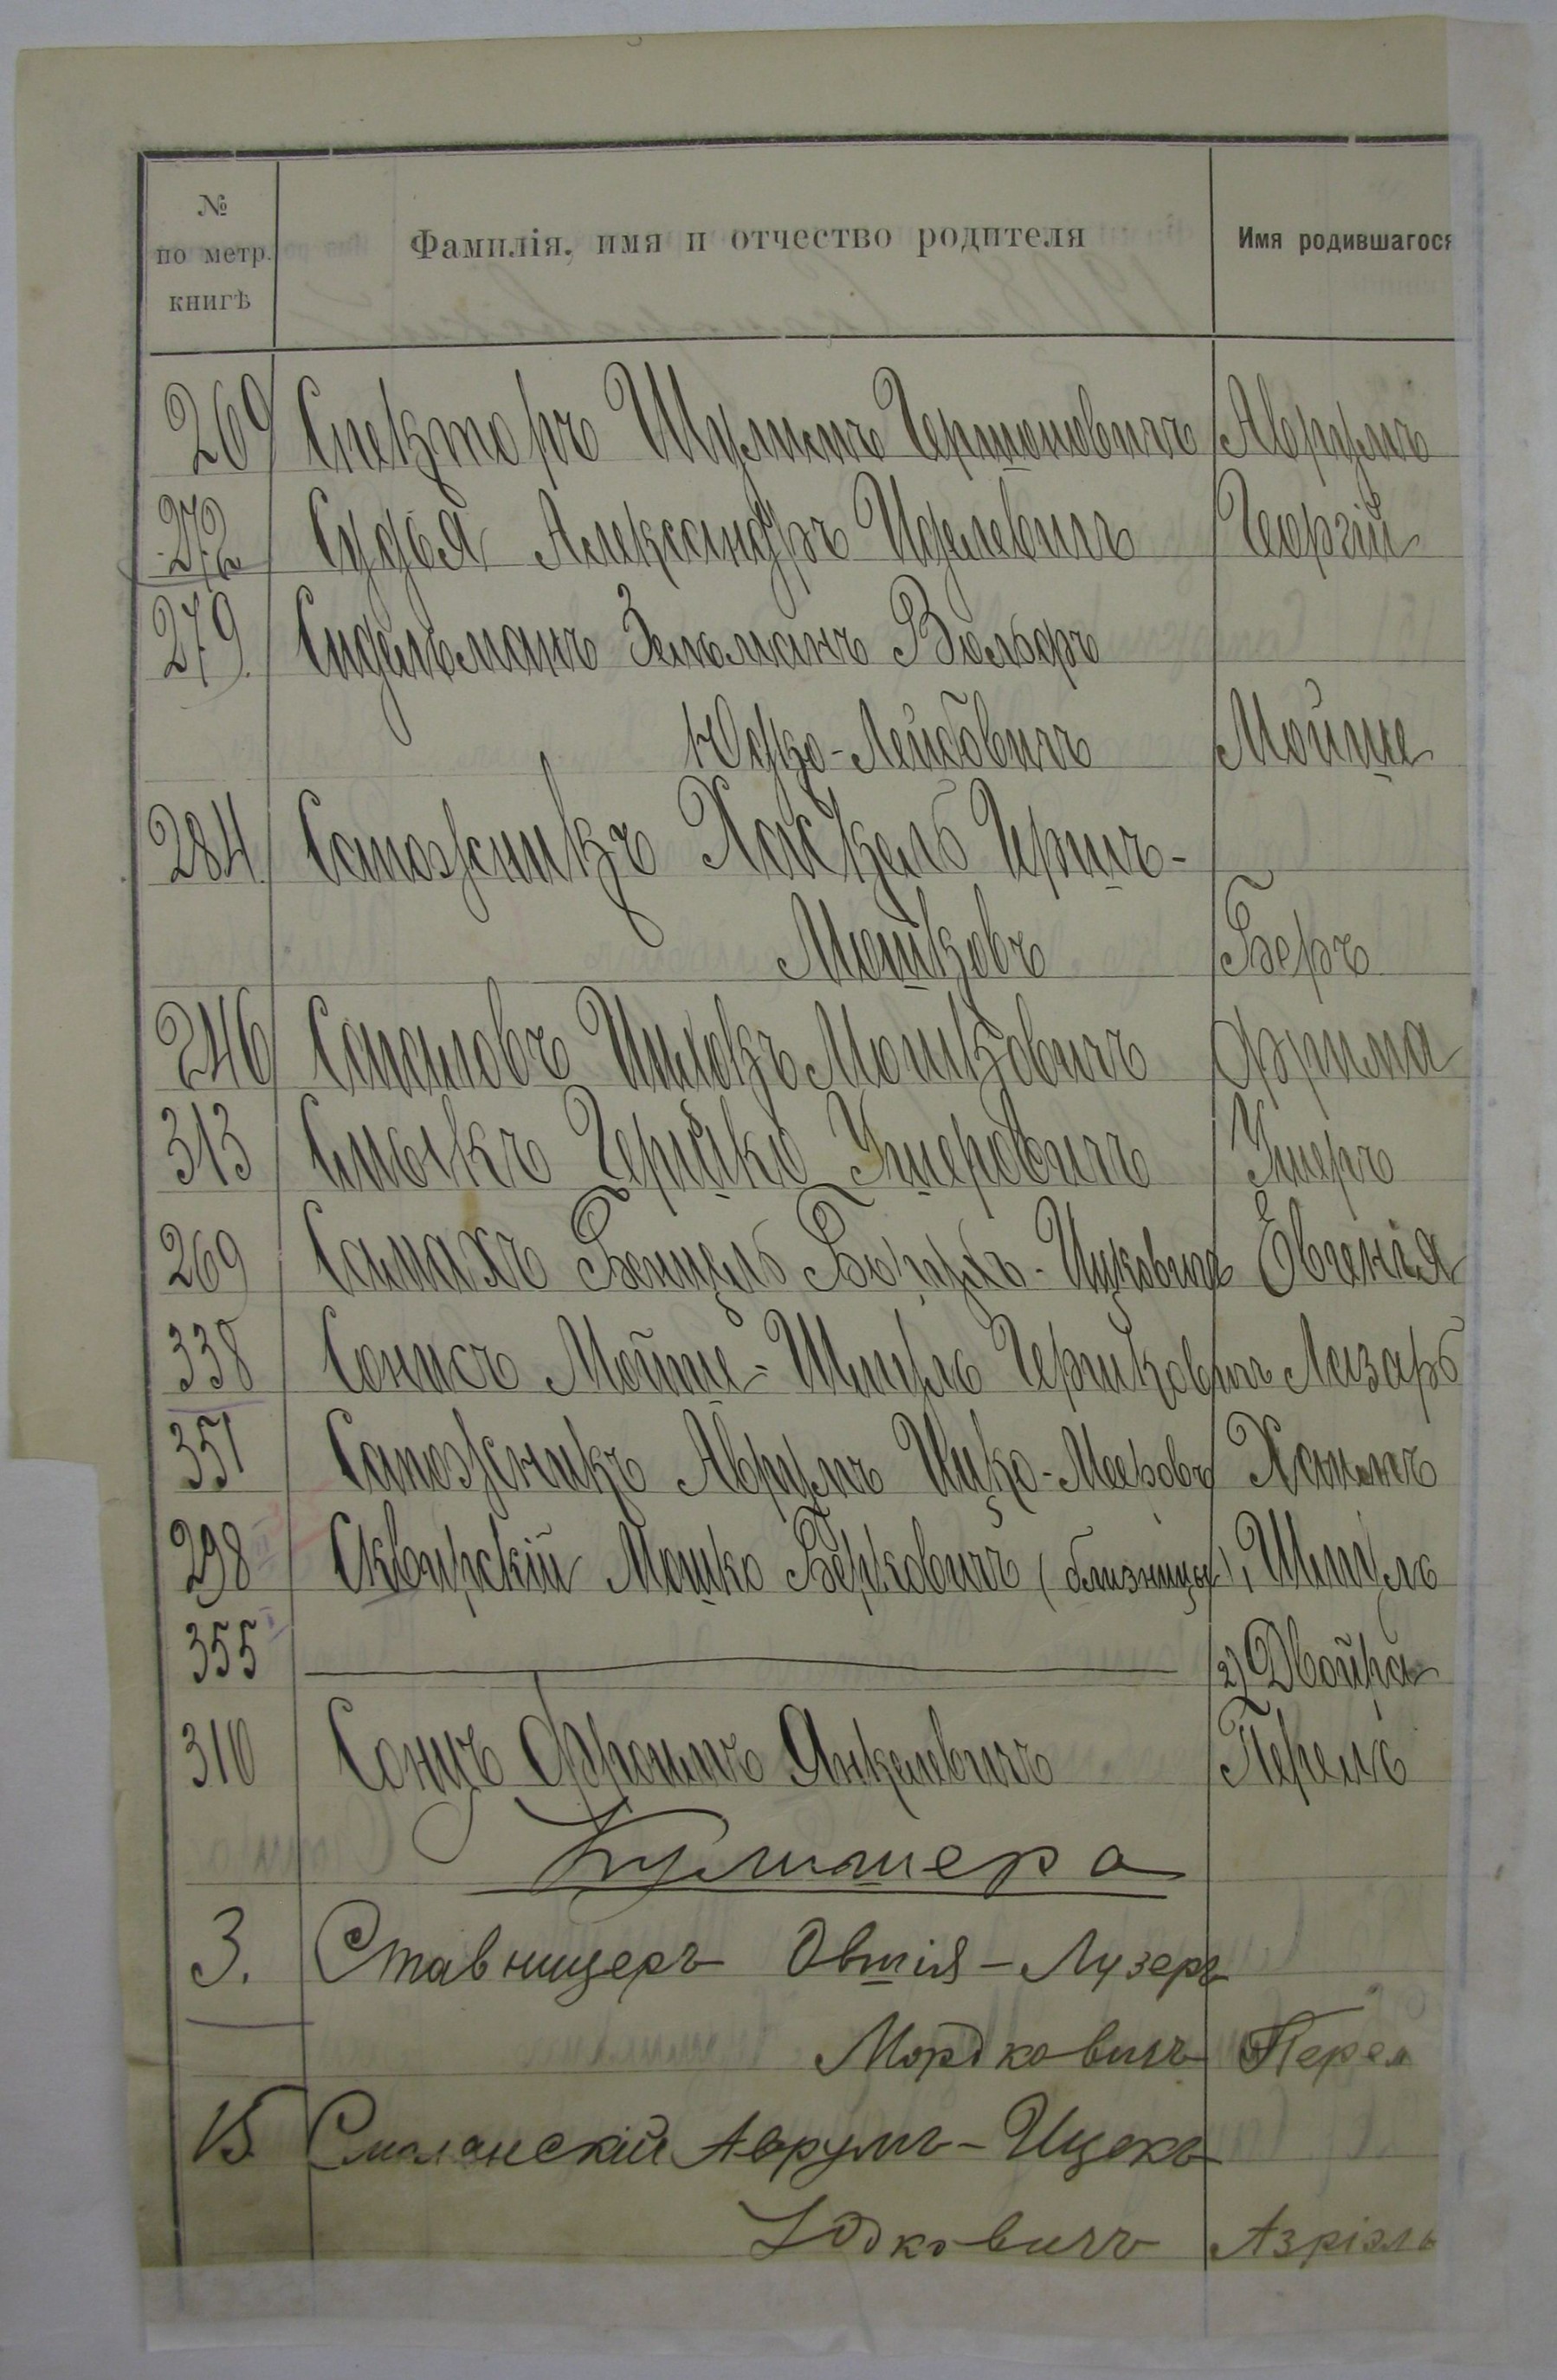 № по метр. книгѣ Фамилія, имя и отчество родителя Имя родившагося
269 Спекторъ Шулимъ Гершоновичъ Аврумъ
272 Судья Александръ Иделевичъ Георгій
279. Сидельманъ Зельманъ Вольфъ
Юдко-Лейбовичъ Мойше
284 Сапожникъ Хаскель Гершъ-
Мошковъ Беръ
246 Мошковичъ Фрима
313 Смыкъ Гершко Ушеровичъ Ушеръ
269 Самахъ Бенцель Ицковичъ Евгенія
338 Сонисъ Мойше-Шмуль Гершковичъ Лазарь
351 Сапожникъ Аврумъ Ицко-Мееровъ Хаимъ
298 Сквирскій Мошко Берковичъ (близнецы) 1, Шмуль
355 2) Двойра
310 Сонцъ Фроимъ Янкелевичъ Перель
Кульшера
3. Ставницеръ Овшія-Лузеръ
Мордковичъ Перел
15 Смолянскій Аврумъ-Ицекъ
Юдковичъ Азріэль